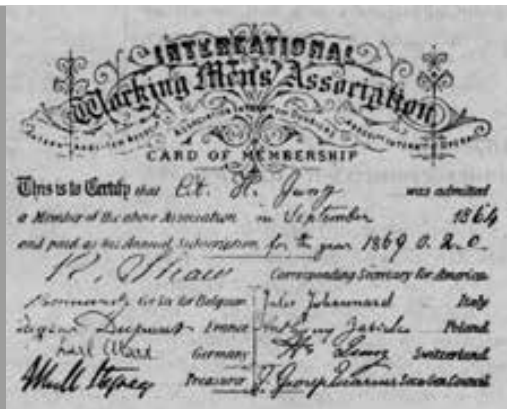 INTERNATIONAL
Working Men's Association
CARD OF MEMBERSHIP
This is to Certify that Cit. H. Jung was admitted
a Member of the above Association in September 1864
and paid as his Annual Subscription for the year 1869 0. 2. 0.
R. Shaw Corresponding Secretary for America
Cor Sec for Belgium Jules Johannard Italy
Eugène Dupont France Anthony Zabicki Poland
Karl Marx Germany H. Jung Switzerland
Treasurer J. George Eccarius Sec. Gen. Council